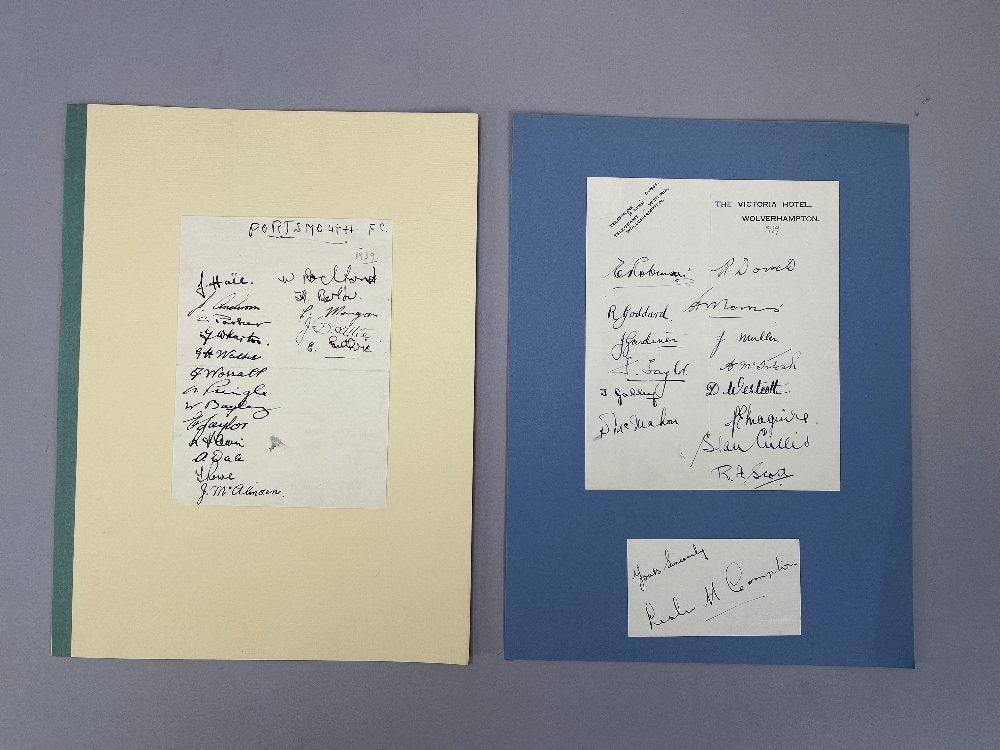 PORTSMOUTH. F.C.
1939.
J. Hall.
J. Anderson
Parker
J Wharton.
G H Walker
F Worrall
Pringle
W Bagley
F Taylor
A Dale
J Rowe
J. McAlinden.
W Rochford
H. Barlow.
E. Guthrie
THE VICTORIA HOTEL.
WOLVERHAMPTON.
1939
E Robinson
R Goddard.
J Gardiner
F. Taylor.
J Galley
D McMahon
R Dorsett
Morris
J. Mullen
A McIntosh
D. Westcott.
J E Maguire.
Stan Cullis
R. A Scott
Yours Sincerely
Leslie H Compton